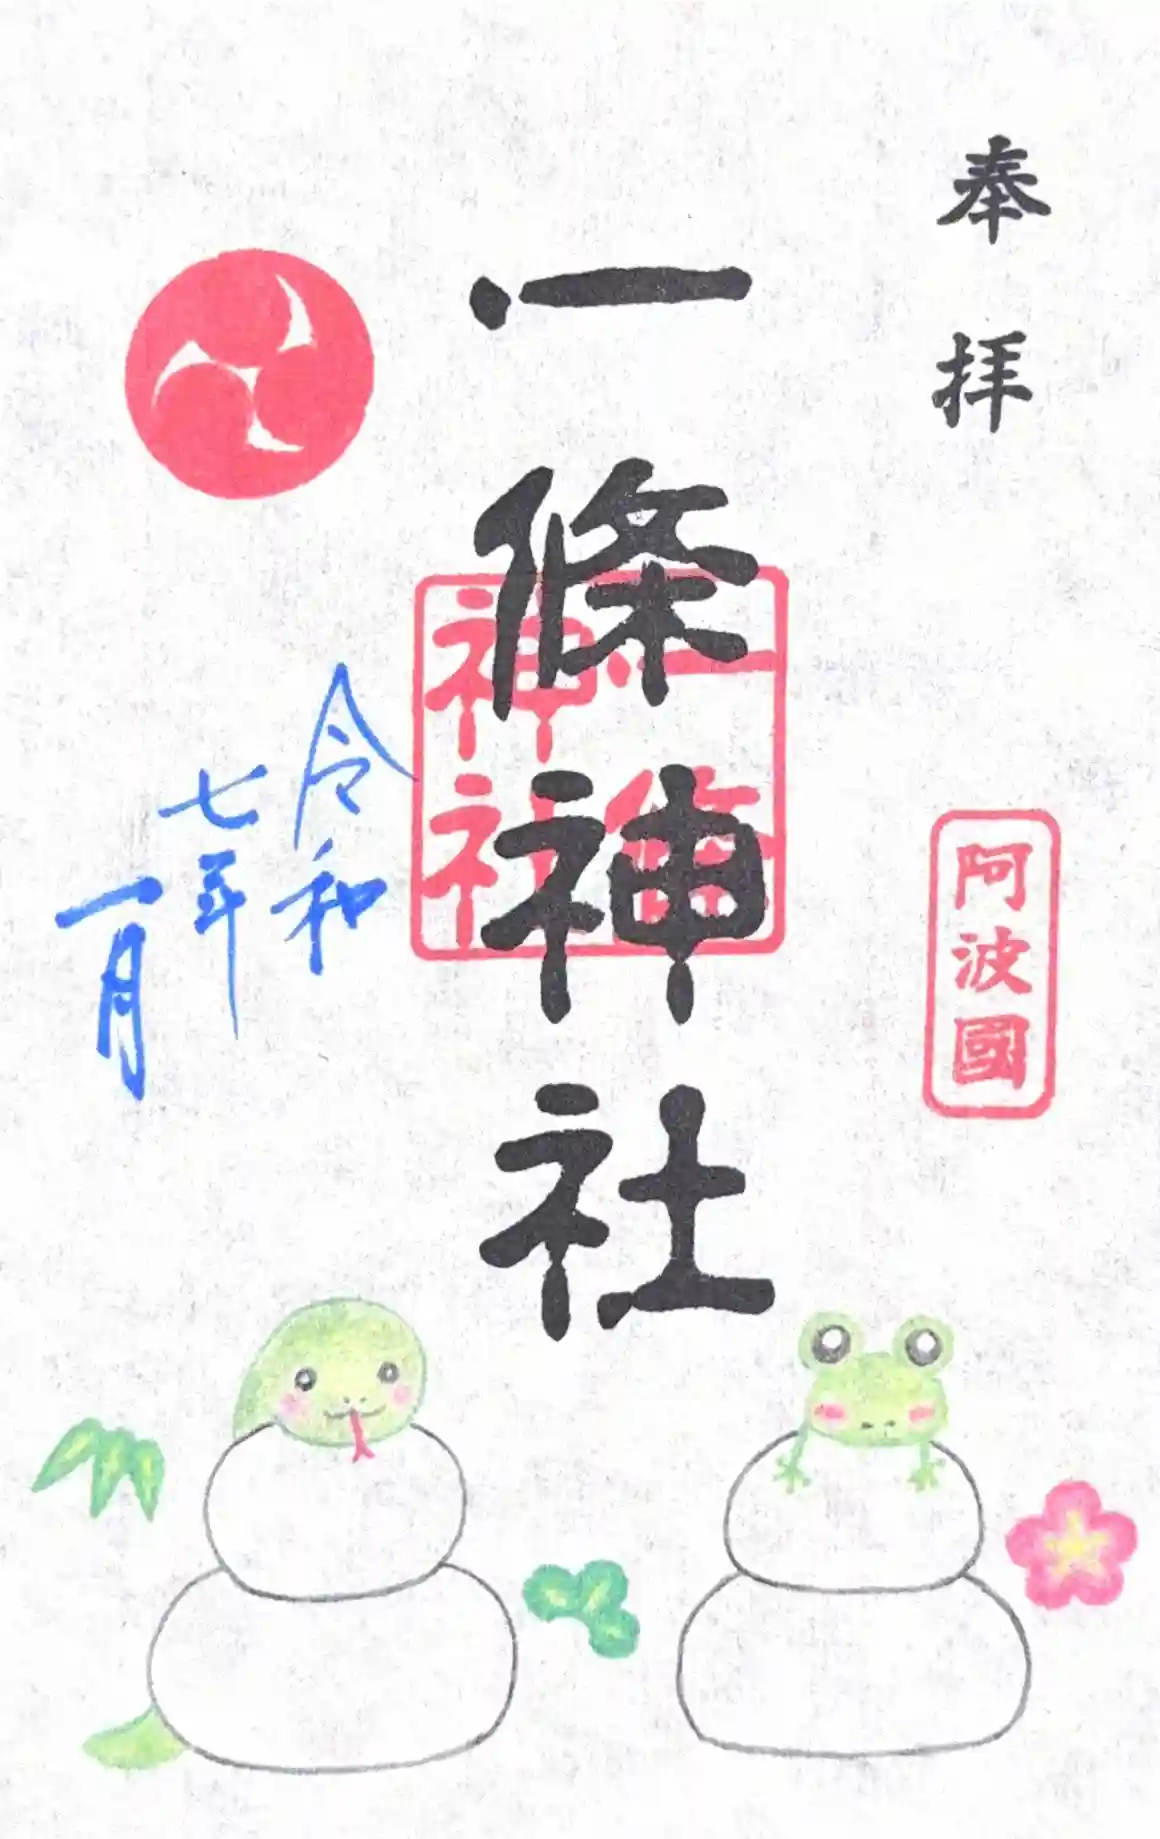 奉拝
阿波國
一條神社
一條
神社
令和
七年
一月